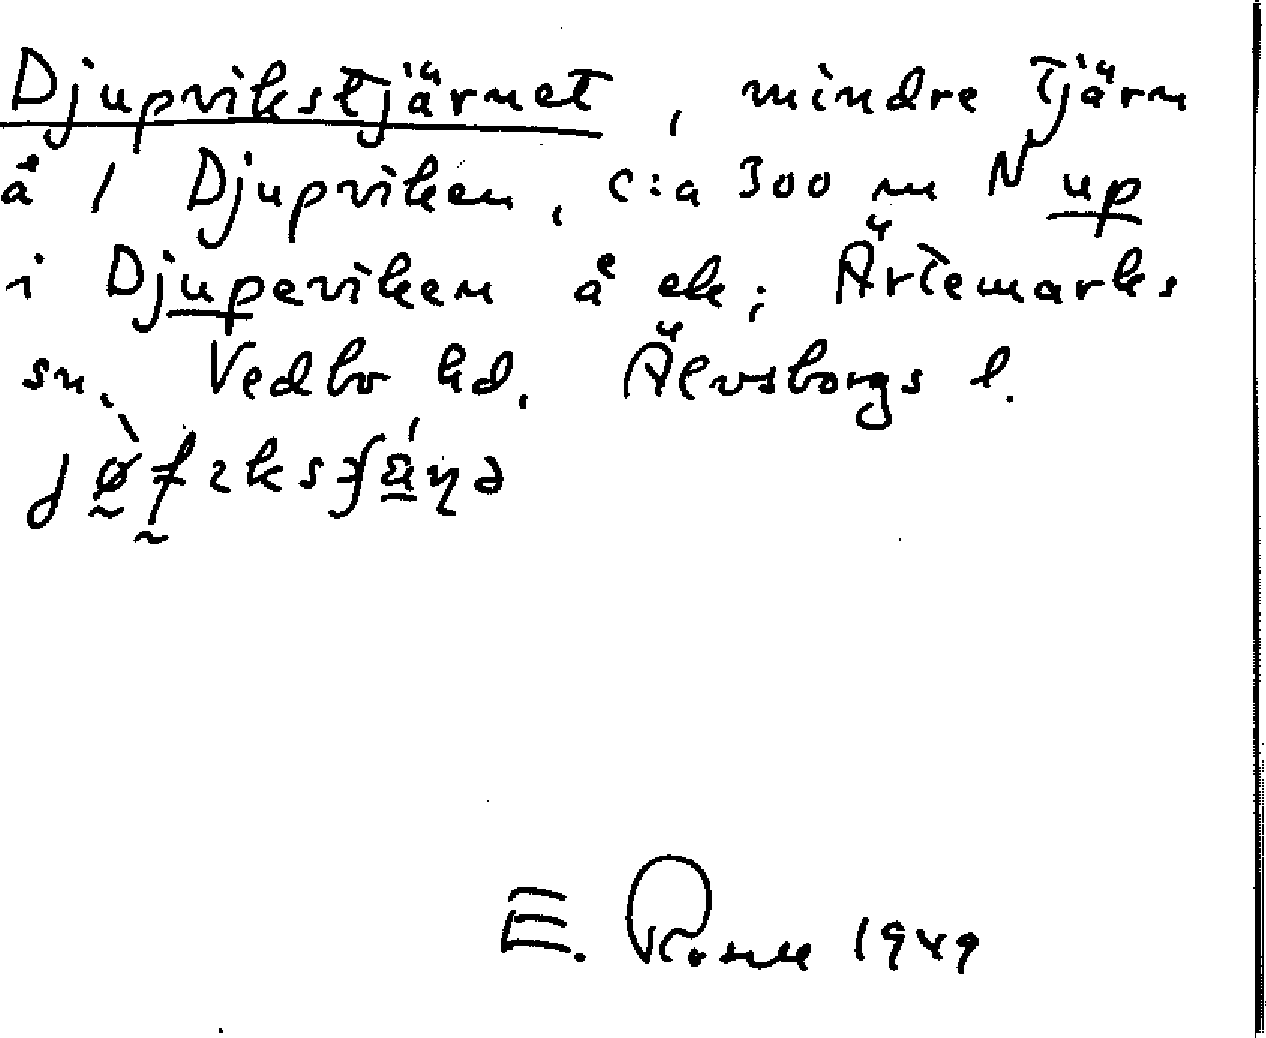 Djupvikstjärnet, mindre tjärn
å 1 Djupviken, c:a 300 m N up
i Djupeviken å ek; Ärtemarks
sn, Vedbo hd, Älvsborgs l.
E. 1949